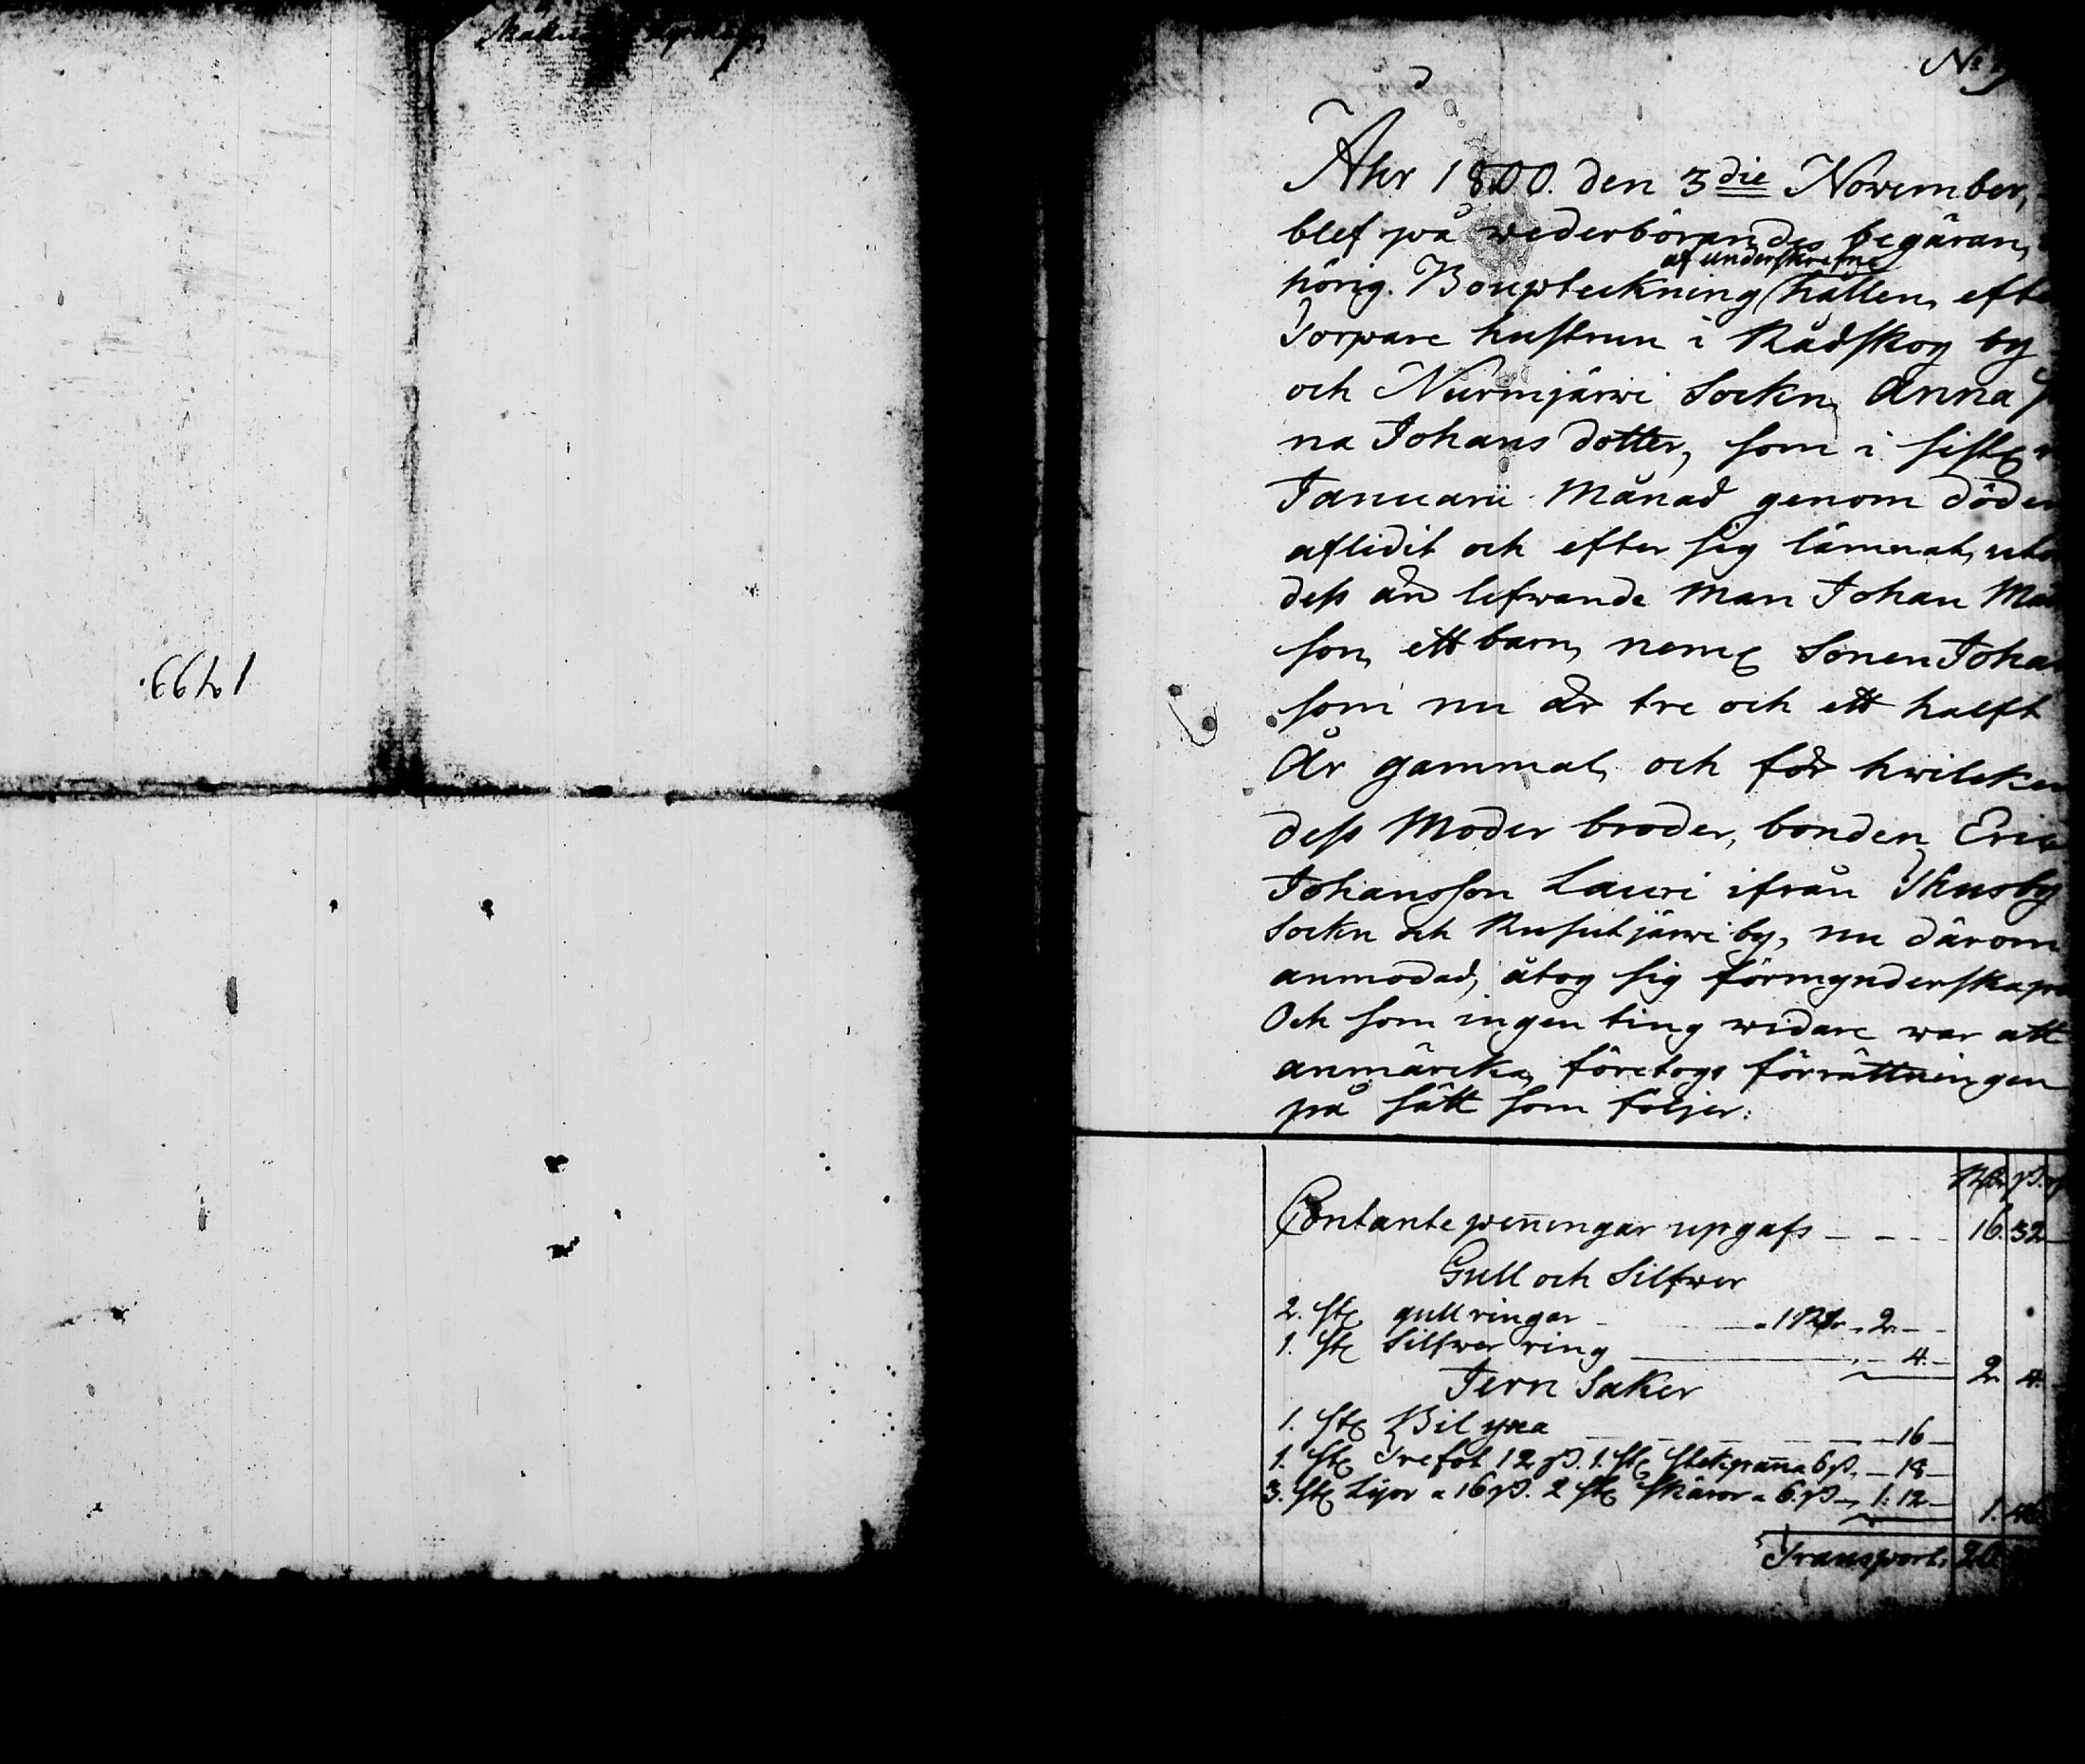 1799.
Åhr 1800. den 3die November,
blef på wederbörandes begäran,
af underskrefne
hörig. Boupteckning hållen, efte
Torpare hustrun i Rådskog by
och Nurmjärwi Sockn, Anna
na Johans dotter, som i sistl
Januarii Månad genom döden
aflidit och efter sig lämnat, uto
dess än lefwande Man Johan Må
son, ett barn, neml Sonen Johan
som nu är tre och ett halft
År gammal, och för hwilcken
dess Moder broder, bonden Eric
Johansson Lauri ifrån Thusby
Sockn och Rusutjärwi by, nu därom
anmodad, åtog sig förmynderskape
Och som ingen ting widare war att
anmärcka, företogs förrättningen
på sätt som följer:
Contante peningar upgafs 16. 32
Gull och Silfwer
2. st gull ringar a 1 Rdr 2.
1. st Silfwer ring 4. 2 4.
Jern Saker
1. st Bil yxa 16
1. st Trefot 12 ß. 1. st Stekpanna 6 ß. 18
3. st Lijor a 16 ß. 2 st Skäror a 6. ß 1: 12 1.
Transport. 20